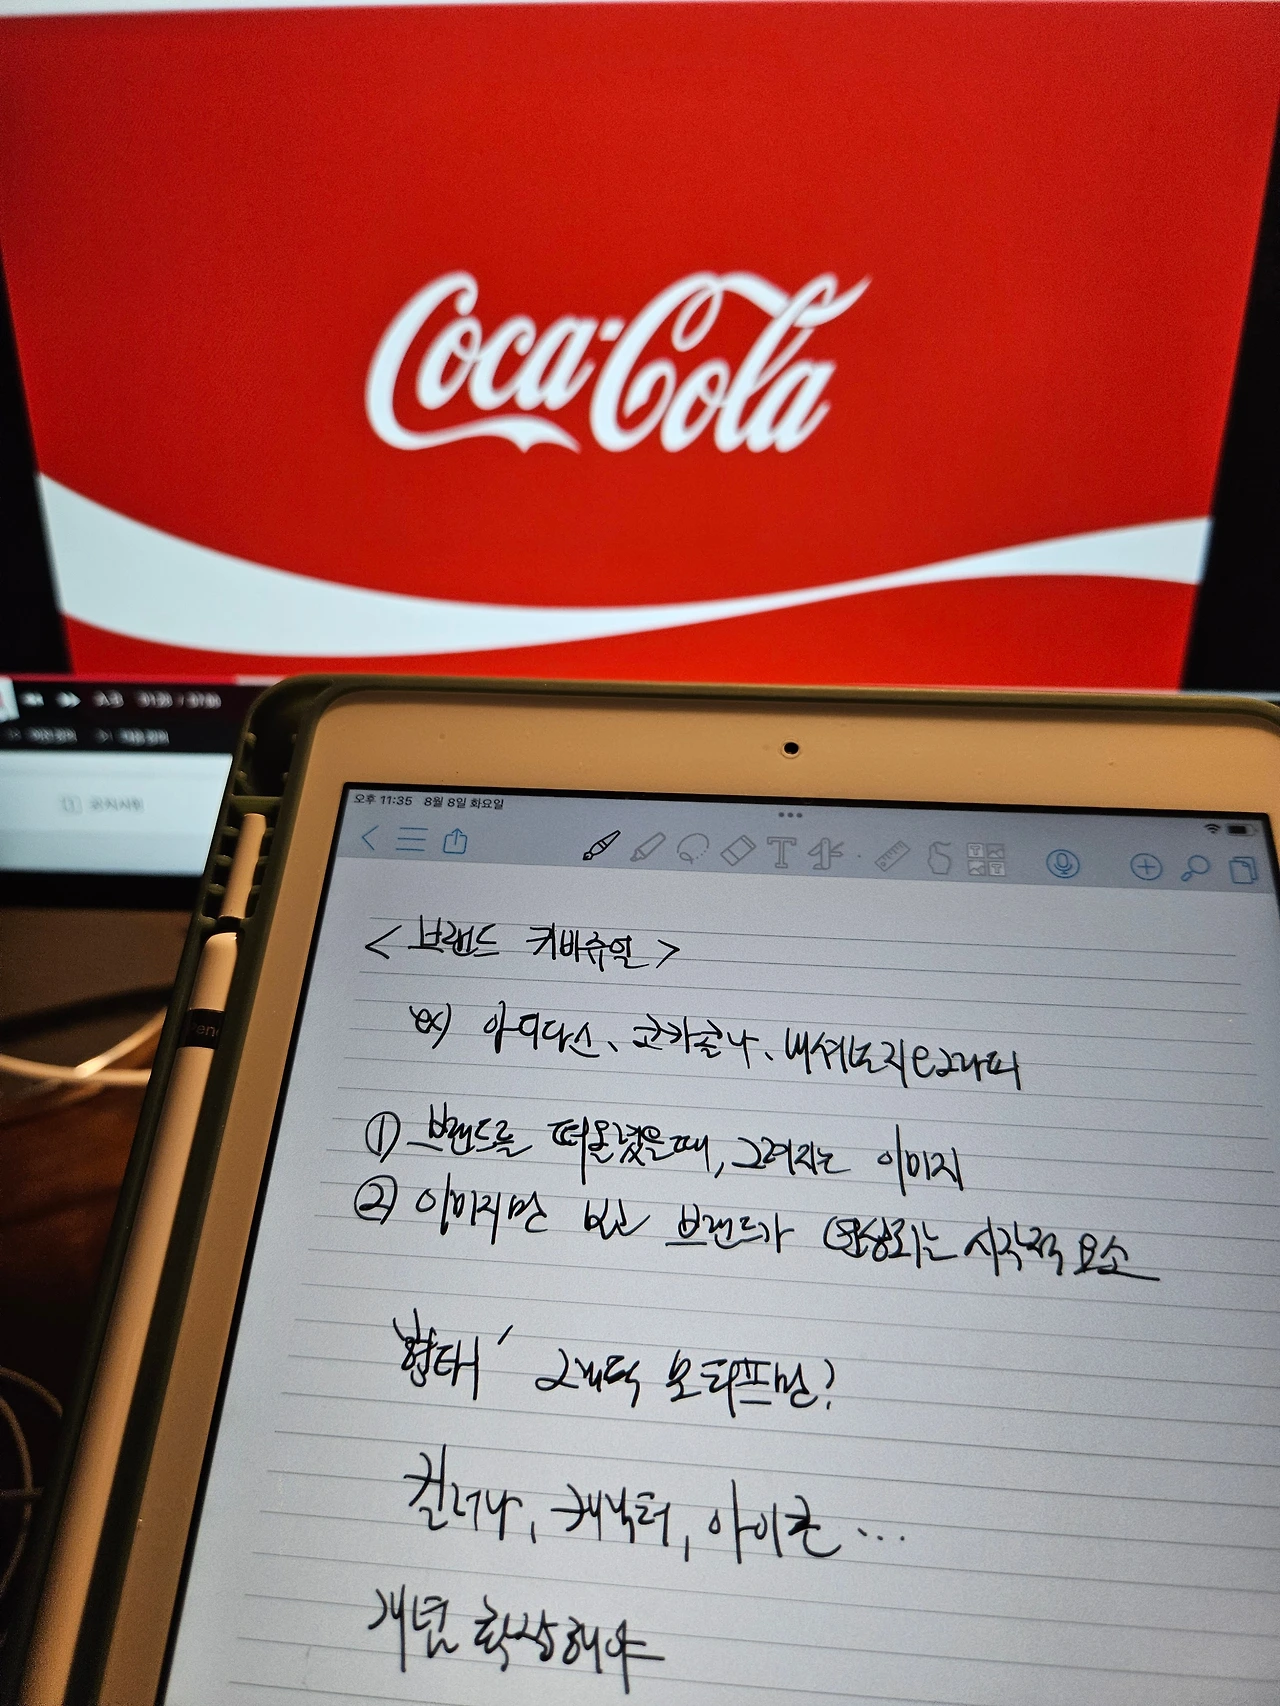 Coca-Cola
오후 11:35 8월 8일 화요일
< 브랜드 키비쥬얼 >
ex) 아디다스、코카콜라、내셔널지오그래픽
① 브랜드를 떠올렸을때, 그려지는 이미지
② 이미지만 보고 브랜드가 연상되는 시각적 요소
형태' 그래픽 모티프만?
컬러나, 캐릭터, 아이콘 ...
개념 확장해야